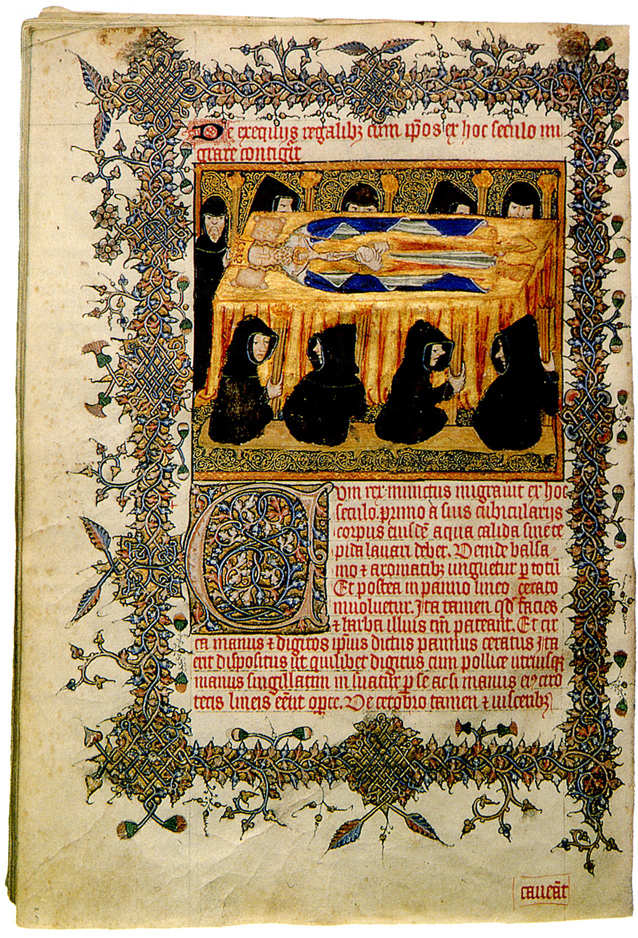 De exequijs regalib; cum ip̄os ex hoc seculo mi
grare contigit
Cum rex inunctus migrauit ex hoc
seculo. primo a suis cubicularijs
corpus eiusdē aqua calida siue te
pida lauari debet. Deinde balsa
mo ⁊ aromatib; ungetur p totū
Et postea in panno lineo cerato
inuoluetur. Ita tamen qd̄ facies
⁊ barba illius tm̄ pateant. Et cir
ca manus ⁊ digitos ipīus dictus pannus ceratus ita
erit dispositus ut quilibet digitus cum pollice utriusq;
manus singillatim insuatur p se ac si manus eꝰ ciro
tecis lineis eēnt opte. De cerebro tamen ⁊ uiscerib;
caueāt